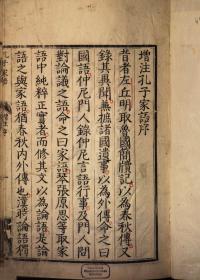 增注孔子家語序
昔者左丘明取魯國簡牘記以為春秋傳又
錄其異聞兼摭諸國遺事以為外傳命之曰
國語仲尼門人錄仲尼言語行事及門人問
對論議之語命之曰家語琴張原思等取家
語中純粹正實者而修其文以為論語是論
語之與家語猶春秋內外傳也漢時論語儕